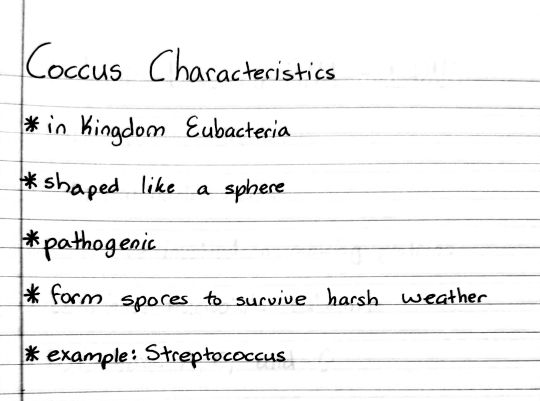 Coccus Characteristics
* in Kingdom Eubacteria
* shaped like a sphere
* pathogenic
* form spores to survive harsh weather
* example: Streptococcus